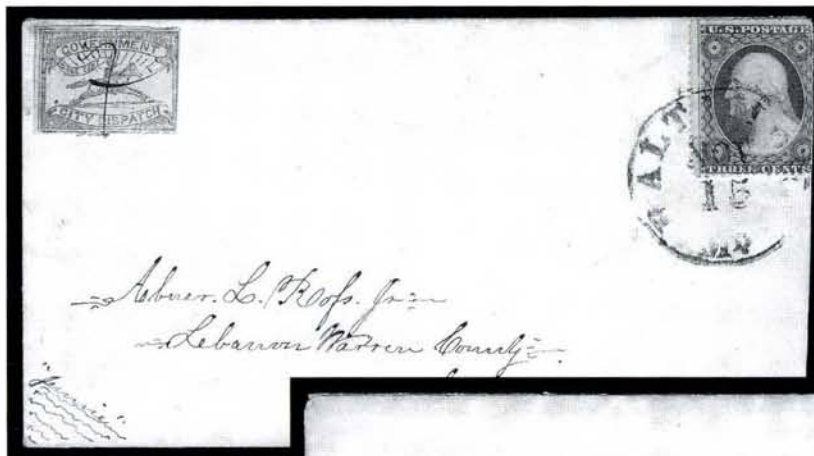 GOVERNMENT
CITY DISPATCH
U.S. POSTAGE
THREE CENTS
BALT
NOV
15
Md
Abner. L. Ross. Jr
Lebanon Warren County